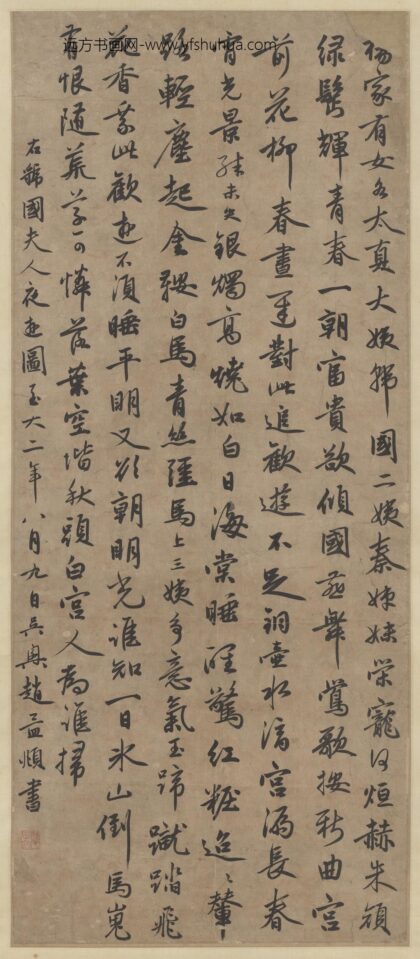 远方书画网-www.yfshuhua.com
杨家有女名太真大姨韩国二姨秦姊妹荣宠何烜赫朱颜
绿鬓辉青春一朝富贵欲倾国燕舞莺歌按新曲宫
前花柳春昼迟对此追欢游不足铜壶水滴宫漏长春
宵光景殊未央银烛高烧如白日海棠睡醒惊红妆迢々辇
路轻尘起金鞍白马青丝缰马上三姨多意气玉蹄蹴踏飞
花香乘此欢游不须睡平明又欲朝明光谁知一日冰山倒马嵬
有恨随荒草可怜落叶空阶秋头白宫人为谁扫
右虢国夫人夜游图至大二年八月九日吴兴赵孟頫书